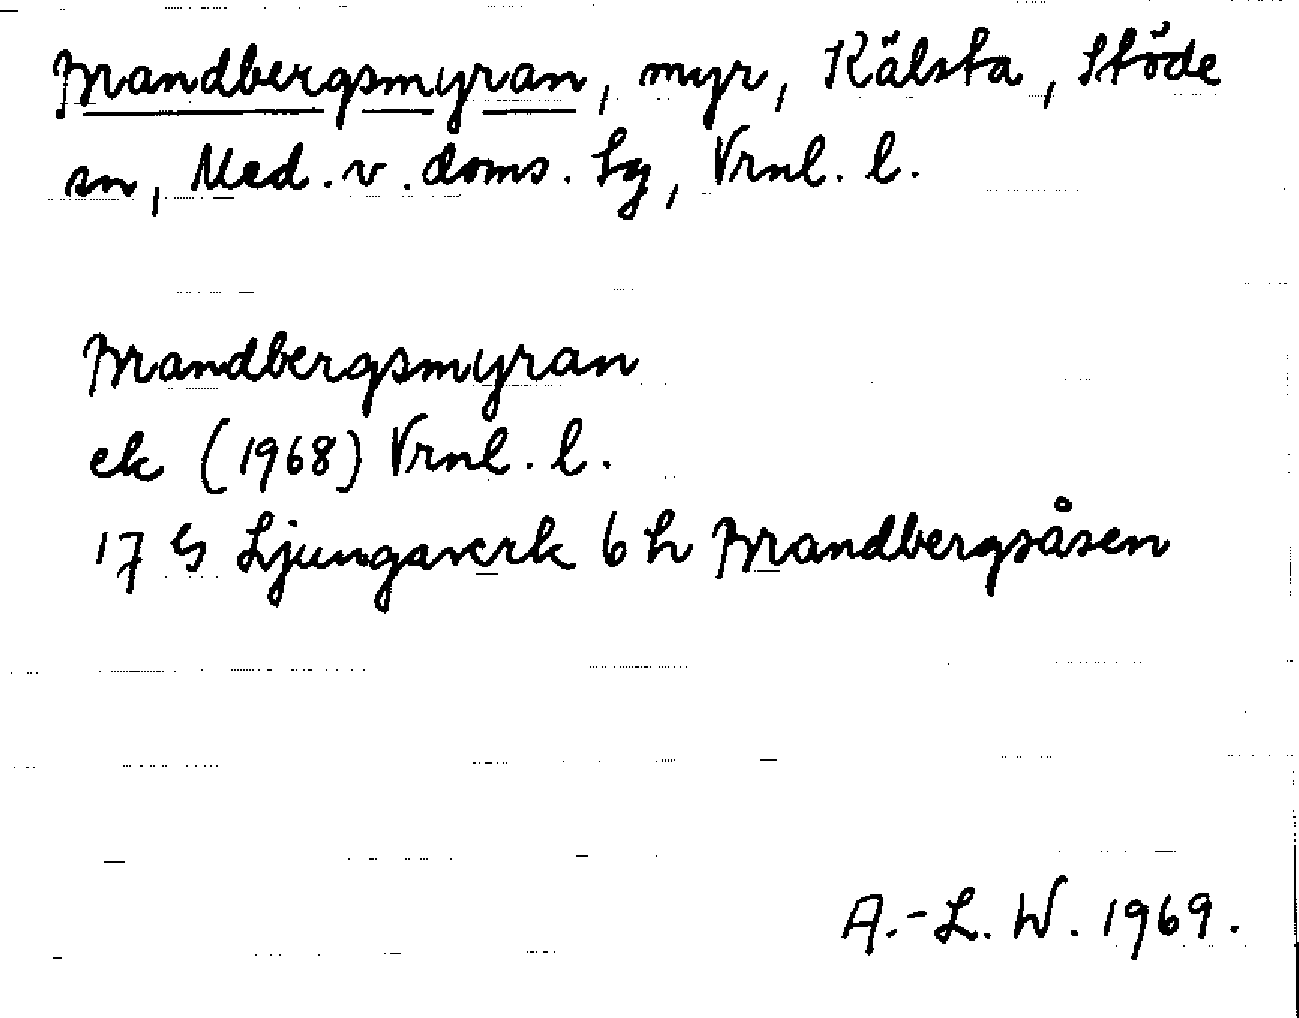 Brandbergsmyran, myr, Kälsta, Stöde
sn, Med. v. doms. Lg, Vrnl. l.
Brandbergsmyran
ek (1968) Vrnl. l.
17 G Ljungaverk 6 h Brandbergsåsen
A.-L. W. 1969.